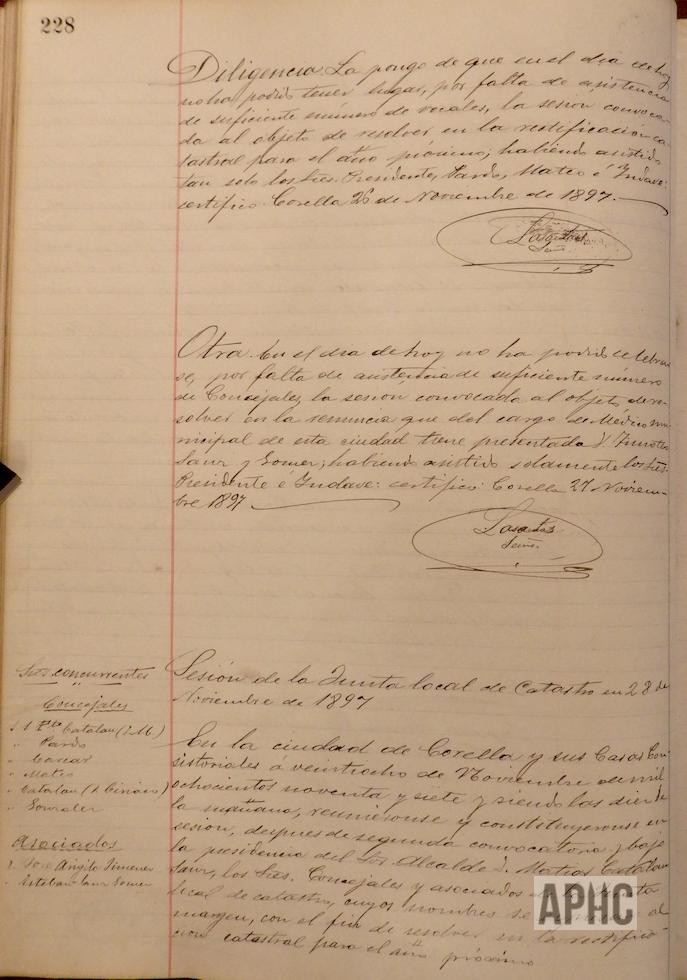 228
Diligencia. La pongo de que en el dia de hoy
no ha podido tener lugar, por falta de asistencia
de suficiente número de vocales, la sesion convoca-
da al objeto de resolver en la rectificacion ca-
tastral para el año próximo; habiendo asistido
tan solo los Sres. Presidente, Pardo, Mateo é Yndave:
certifico. Corella 26 de Noviembre de 1897.
Otra. En el dia de hoy no ha podido celebrar
se, por falta de asistencia de suficiente número
de Concejales, la sesion convocada al objeto de re-
solver en la renuncia que del cargo de Médico mu-
nicipal de esta ciudad tiene presentada D. Timoteo
Sanz y Gomez; habiendo asistido solamente los Sres.
Presidente é Yndave: certifico. Corella 27 Noviem-
bre 1897.
Lasantas
Srio.
Sres. concurrentes
Concejales
Catalan
" Pardo
"
" Mateo
" Catalan
" Gonzalez
Asociados
José Angito Jimenez
" Esteban Sanz Gomez
Sesión de la Junta local de Catastro en 28 de
Noviembre de 1897
En la ciudad de Corella y sus Casas Con-
sistoriales á veintiocho de Noviembre de mil
ochocientos noventa y siete y siendo las diez de
la mañana, reuniéronse y constituyéronse en
sesion, despues de segunda convocatoria y bajo
la presidencia del Sor. Alcalde D. Matias Catalan
Sanz, los Sres. Concejales y asociados de la Junta
local de catastro, cuyos nombres se al
margen, con el fin de resolver en la rectifica-
cion catastral para el año próximo
APHC